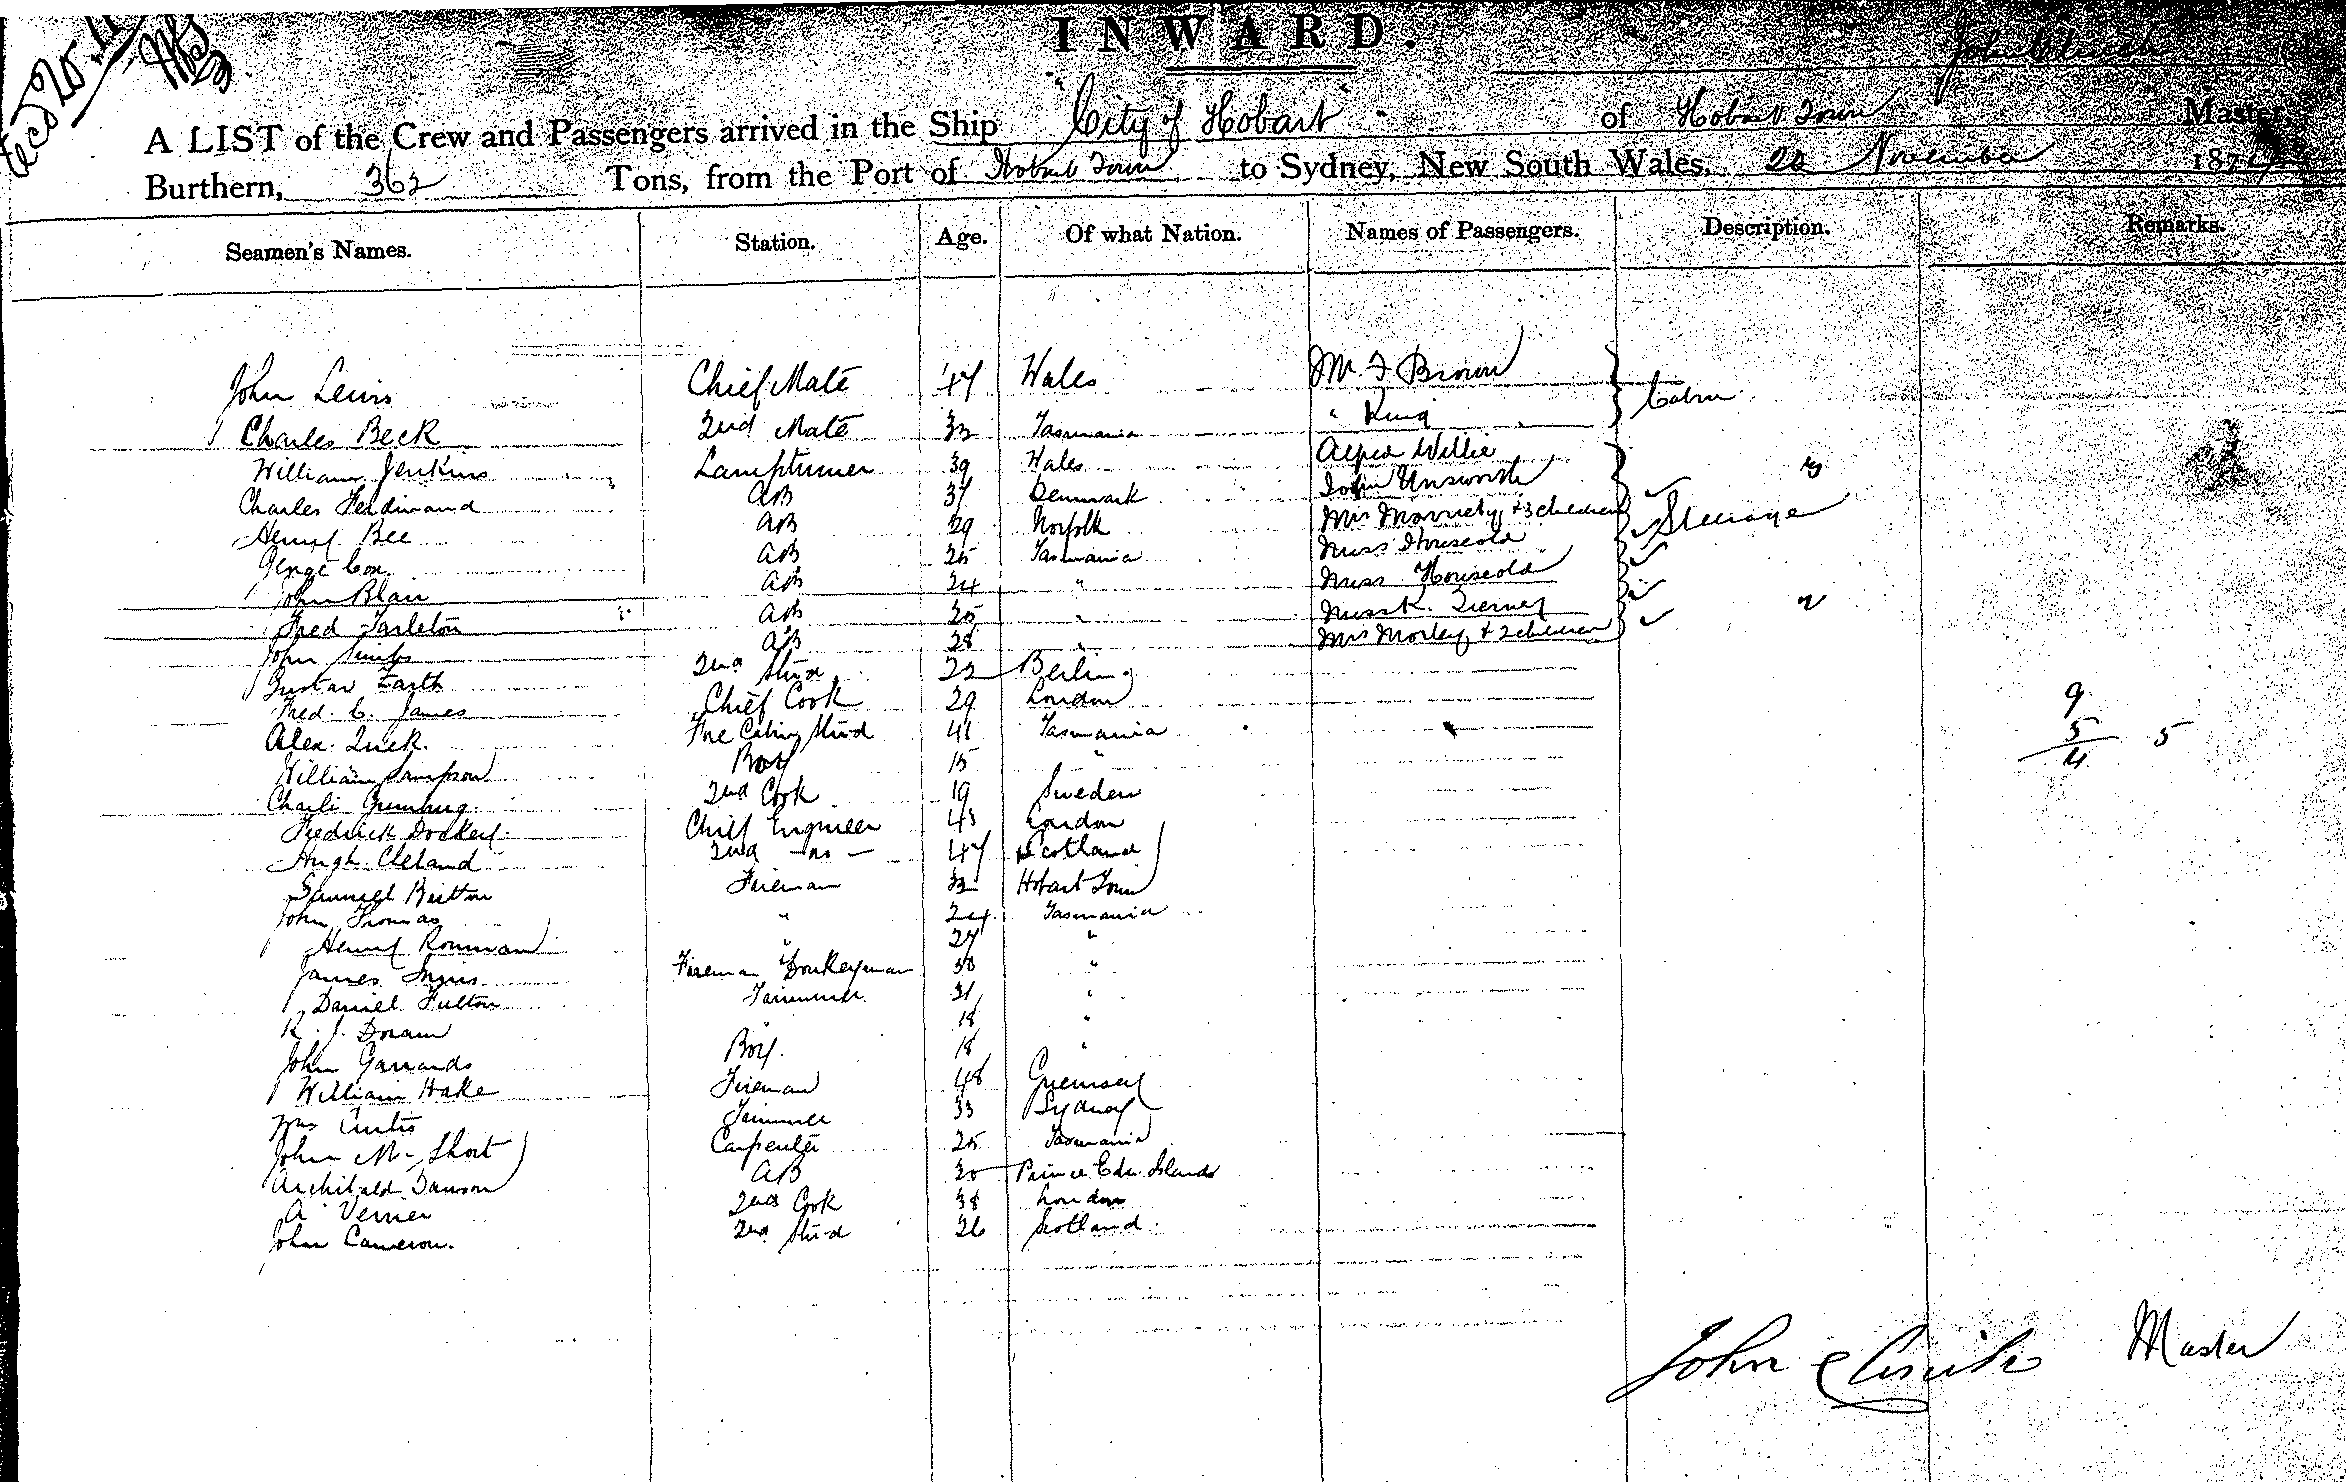 INWARD.
A LIST of the Crew and Passengers arrived in the Ship "City of Hobart" of Hobart Town Master,
Burthern, 362 Tons, from the Port of Hobart Town to Sydney, New South Wales, 20 November 187
Seamen's Names. Station. Age. Of what Nation. Names of Passengers. Description. Remarks.
John Lewis Chief Mate 47 Wales Mr F Brown Cabin
Charles Beck 2nd Mate 33 Tasmania " King
William Jenkins Lamptrimmer 39 Wales Alfred Willie
Charles Ferdinand AB 37 Denmark John Unsworth
Henry Bee AB 29 Norfolk Mrs + 3 children Steerage
George Cox AB 25 Tasmania Miss Houseold
John Blair AB 24 " Miss Houseold
Fred Tarleton AB 25 " Miss K. Tierney
John AB 28 " Mrs Morley + 2 children
Gustav Barth 2nd Stwd 22 Berlin
Fred. C. James Chief Cook 29 London 9
Alex. Quick. Fore Cabin Stwd 41 Tasmania 5 5
William Sampson Boy 15 " 4
Charli 2nd Cook 19 Sweden
Fredrick Dockery Chief Engineer 43 London
Hugh Cleland 2nd - do - 47 Scotland
Samuel Britton Fireman 32 Hobart Town
John Thomas " 24 Tasmania
Henry " 27 "
James Fireman Donkeyman 30 "
Daniel Fulton Trimmer 21 "
R. J. Doran " 18 "
John Garrards Boy. 18 "
William Hake Fireman 48 Guernsey
Wm Curtis Trimmer 33 Sydney
John M. Short Carpenter 25 Tasmania
Archibald Dawson AB 30 Prince Edw. Islands
A Verner 2nd Cook 38 London
John Cameron. 2nd Stwd 26 Scotland
John Clinch Master